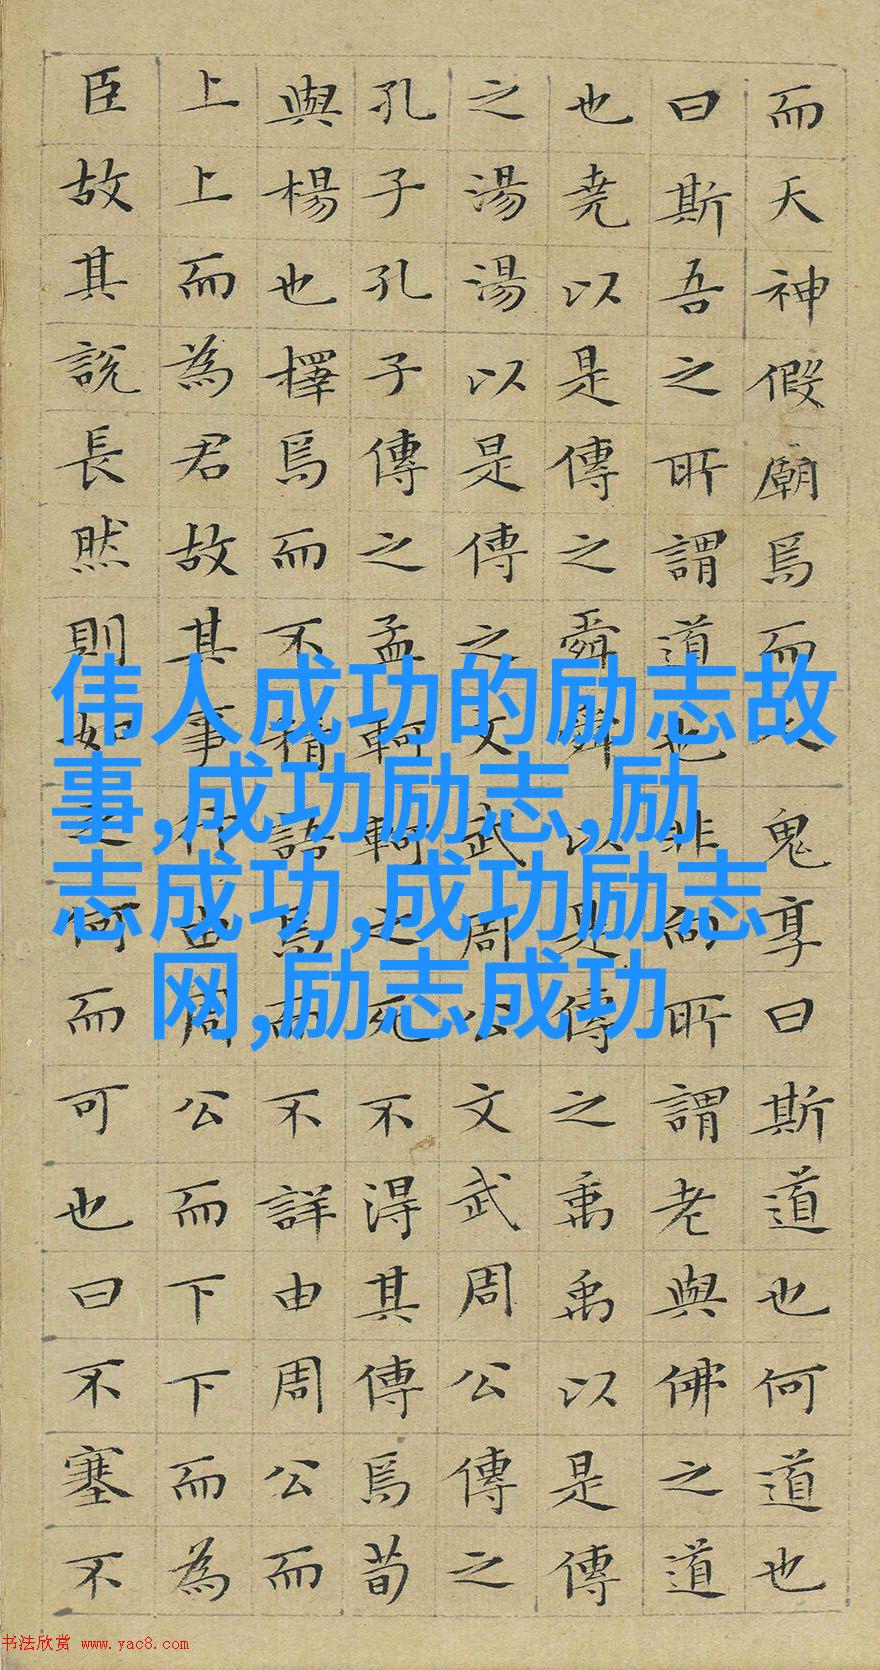 而天神假廟焉而人鬼享曰斯道也何道也
曰斯吾之所謂道也非向所謂老與佛之道
也堯以是傳之舜舜以是傳之禹禹以是傳
之湯湯以是傳之文武周公文武周公傳之
孔子孔子傳之孟軻軻之死不得其傳焉荀
與楊也擇焉而不精語焉而不詳由周公而
上上而為君故其事行由周公而下下而為
臣故其說長然則如之何而可也曰不塞不
伟人成功的励志故
事,成功励志,励
志成功,成功励志
网,励志成功
书法欣赏 www.yac8.com